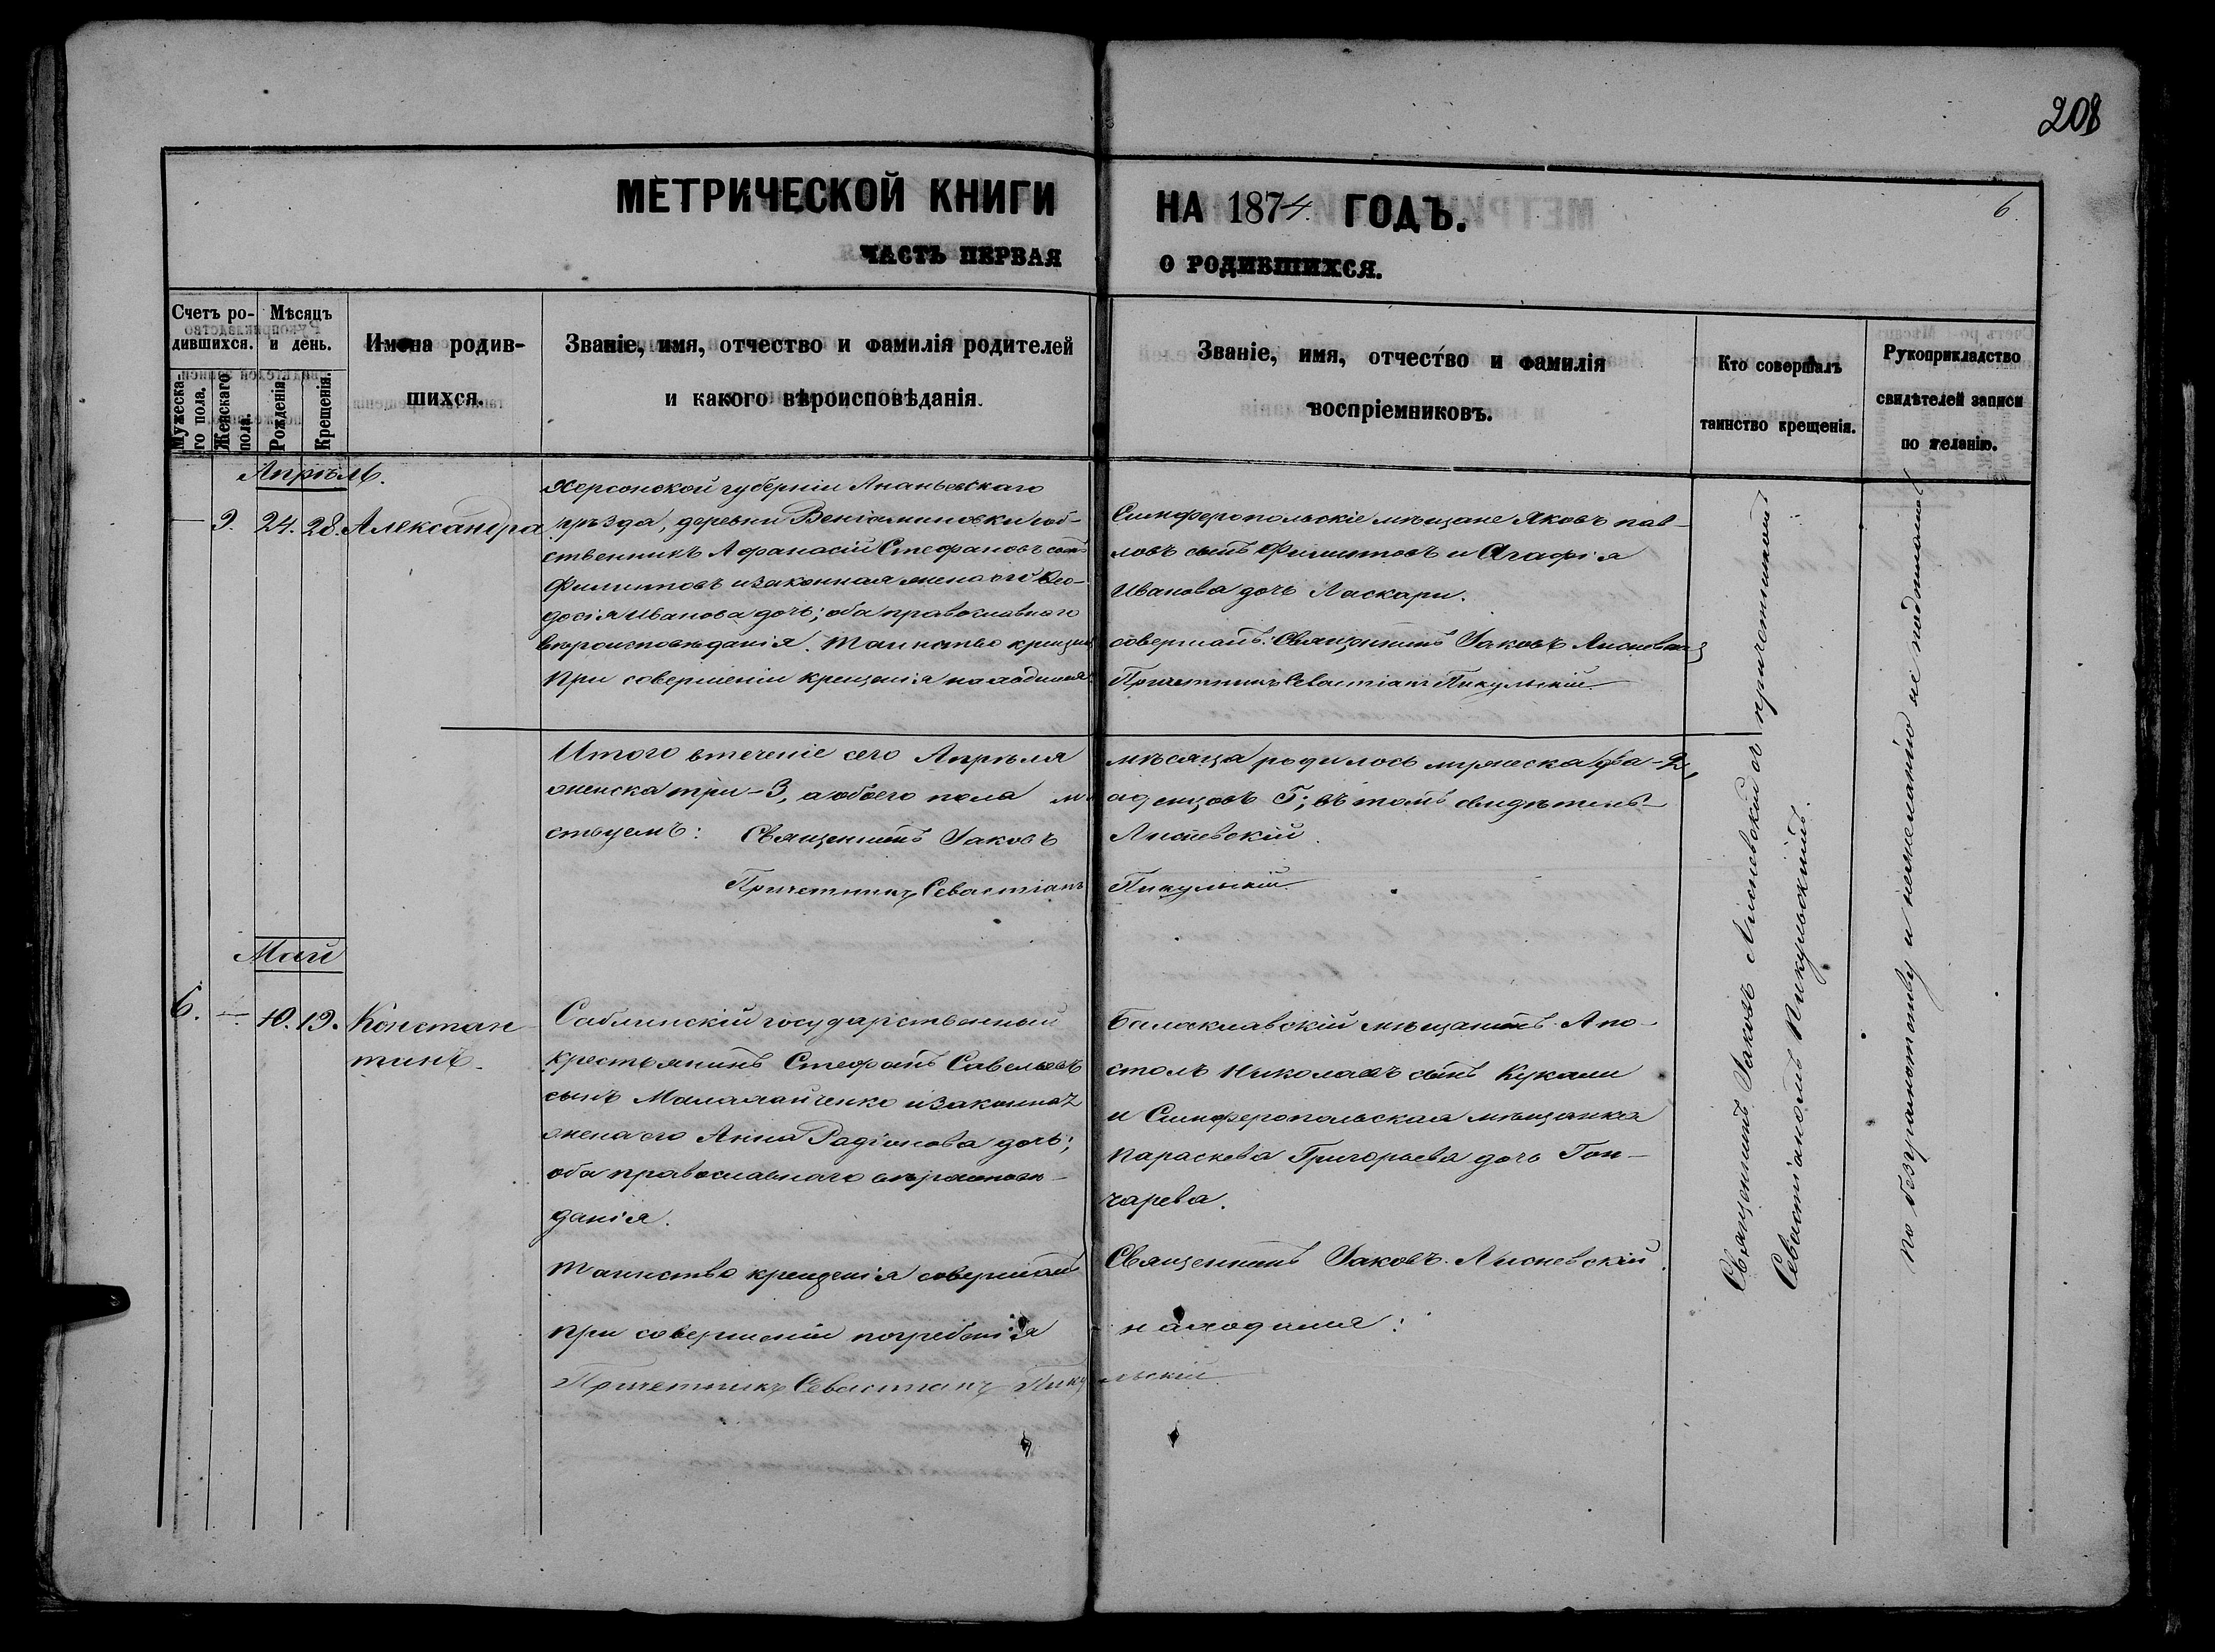 208
МЕТРИЧЕСКОЙ КНИГИ НА 1874 ГОДЪ.
6.
ЧАСТЬ ПЕРВАЯ О РОДИВШИХСЯ.
Счетъ ро-
дившихся.
Мужеска-
го пола.
Женскаго
пола.
Мѣсяцъ
и день.
Рожденія.
Крещенія.
Имена родив-
шихся.
Званіе, имя, отчество и фамилія родителей
и какого вѣроисповѣданія.
Званіе, имя, отчество и фамилія
воспріемниковъ.
Кто совершалъ
таинство крещенія.
Рукоприкладство
свидѣтелей записи
по желанію.
Апрѣль.
— 9. 24. 28. Александра
Херсонской губерніи Ананьевскаго
уѣзда, деревни Веніаминовки соб-
ственникъ Афанасій Стефановъ сынъ
Филиповъ и законная жена его Ѳео-
досія Иванова дочь; оба православнаго
вѣроисповѣданія. Таинство крещенія
При совершеніи крещенія находился
Симферопольскіе мѣщане Яковъ Пав-
ловъ сынъ Филиповъ и Агафія
Иванова дочь Ласкари.
совершалъ: Священникъ Іаковъ Лисневскій
Причетникъ Севастіанъ Пикульскій
Итого втеченіе сего Апрѣля мѣсяца родилось мужеска два-2,
женска три-3, а обоего пола младенцовъ 5; въ томъ свидѣтель-
ствуемъ: Священникъ Іаковъ Лисневскій.
Причетникъ Севастіанъ Пикульскій
Май
6. — 10. 19. Констан-
тинъ.
Саблинскій государственный
крестьянинъ Стефанъ Савельевъ
сынъ Маламайченко и законная
жена его Анна Радіонова дочь;
оба православнаго вѣроисповѣ-
данія.
Таинство крещенія совершалъ
При совершеніи погребенія
Причетникъ Севастианъ Пику
Балаклавскій мѣщанинъ Апо-
столъ Николаевъ сынъ Кукали
и Симферопольская мѣщанка
Параскева Григорьева дочь Гон-
чарева.
Священникъ Іаковъ Лисневскій.
находился:
льскій
Священникъ Іаковъ Лисневскій съ причетникомъ
Севастіаномъ Пикульскимъ.
по безграмотству и нежеланію не подписались